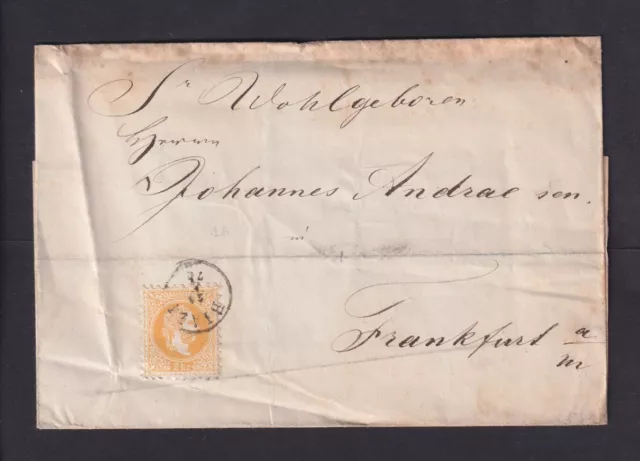 Sr Wohlgeboren
Herrn
Johannes Andrae sen.
in
Frankfurt a/m